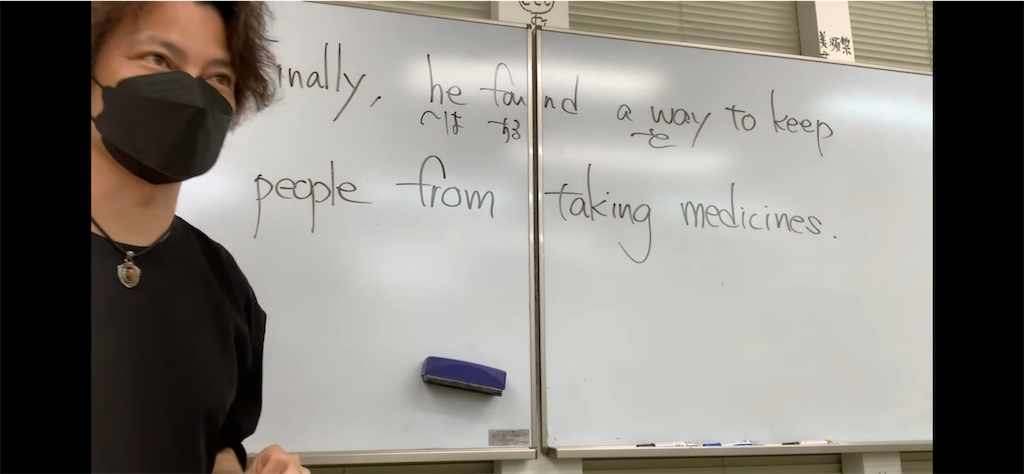 inally, he found a way to keep
〜は する 〜を
people from taking medicines.